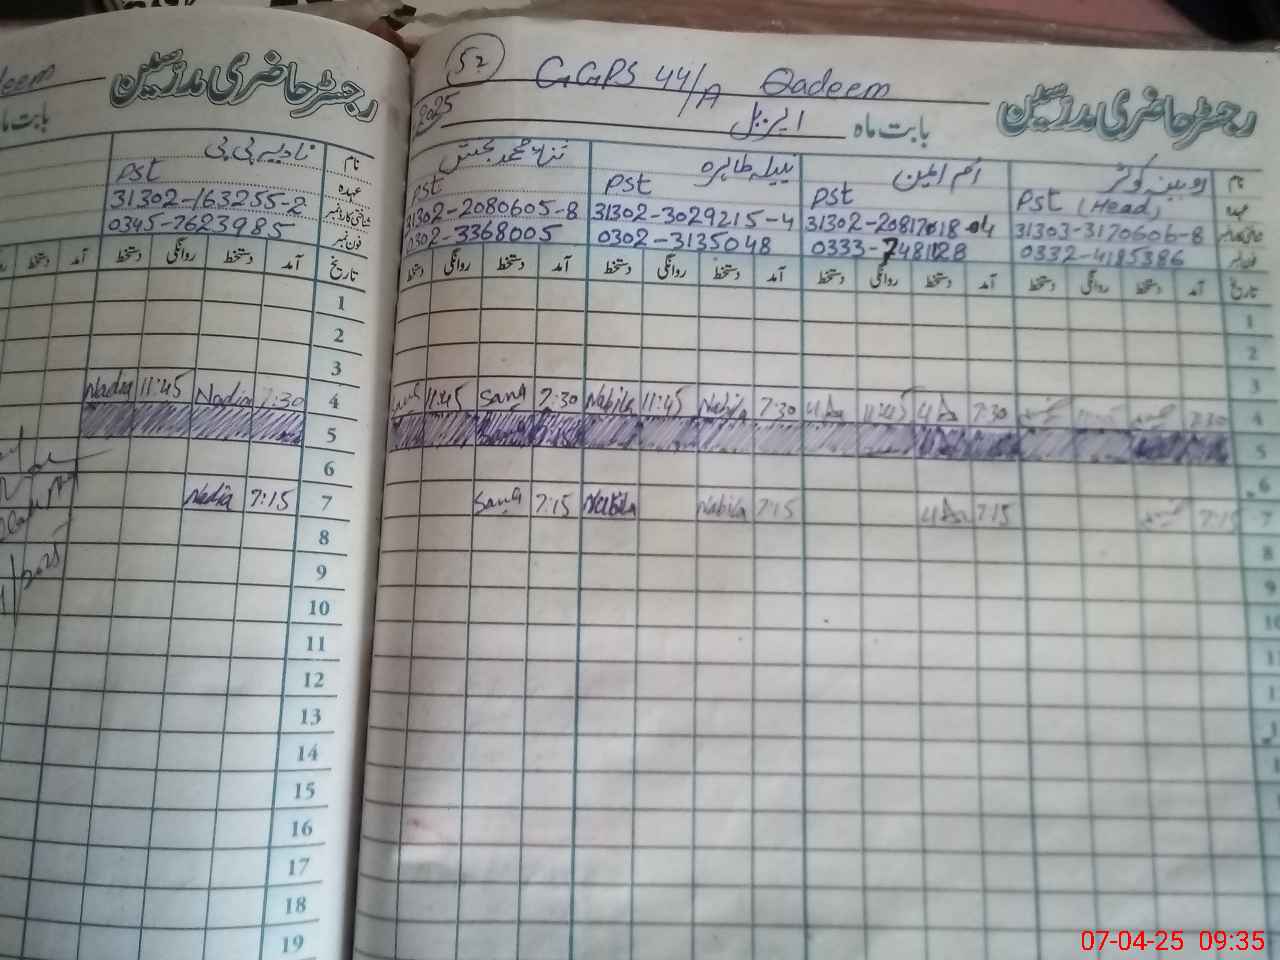 رجسٹر حاضری مدرسین
بابت ماہ
نام نادیہ بی بی
عہدہ PST
شناختی کارڈ نمبر 31302-163255-2
فون نمبر 0345-7623985
تاریخ آمد دستخط روانگی دستخط آمد دستخط
1
2
3
4 7:30 Nadia 11:45 Nadia
5
6
7 7:15 Nadia
8
9
10
11
12
13
14
15
16
17
18
19
52 GGPS 44/A Qadeem رجسٹر حاضری مدرسین
2025 بابت ماہ اپریل
نام روبینہ کوثر نبیلہ طاہرہ
عہدہ PST (Head) PST PST PST
31303-3170606-8 31302-3029215-4 31302-2080605-8
0332-4185386 0333-7481128 0302-3135048 0302-3368005
تاریخ آمد دستخط روانگی دستخط آمد دستخط روانگی دستخط آمد دستخط روانگی دستخط آمد دستخط روانگی دستخط
1
2
3
4 7:30 7:30 11:45 7:30 Nabila 11:45 Nabila 7:30 Sana 11:45
5
6
7 7:15 7:15 7:15 Nabila Nabila 7:15 Sana
8
9
10
07-04-25 09:35